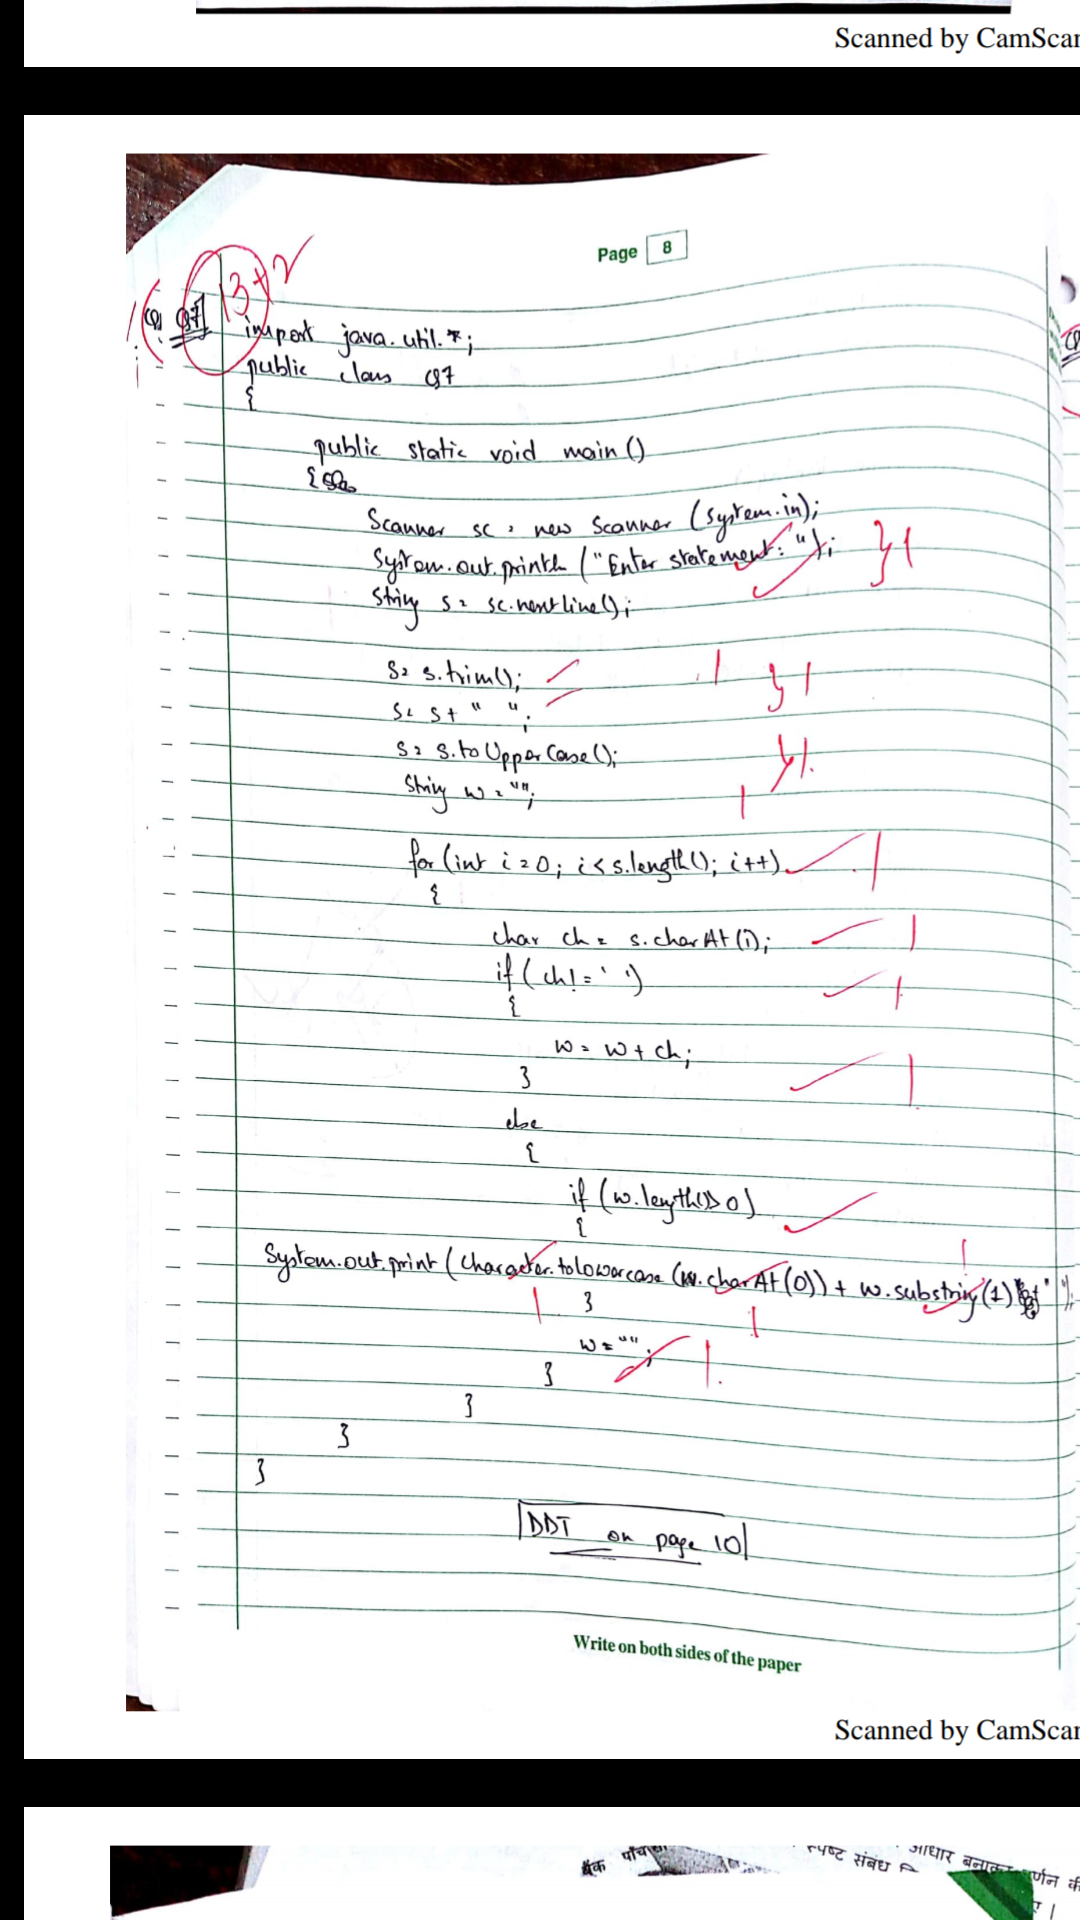 Scanned by CamScan
Page 8
13+2
Q7
import java.util.*;
public class Q7
{
public static void main()
{
Scanner sc = new Scanner (System.in);
System.out.println ("Enter statement: ");
}1
String s = sc.nextLine();
s = s.trim();
1
}1
s = s+ " ";
s = s.toUpperCase();
}1.
String w = "";
1
for (int i=0; i<s.length(); i++)
1
{
char ch = s.charAt(i);
1
if (ch!=' ')
1
{
w = w + ch;
}
1
else
{
if (w.length()>0)
{
System.out.print (Character.toLowercase (w.charAt(0)) + w.substring(1)
1
}
1
1
w = "";
1.
}
}
}
}
DDT on page 10
Write on both sides of the paper
Scanned by CamScan
बैंक
स्पष्ट संबंध
आधार